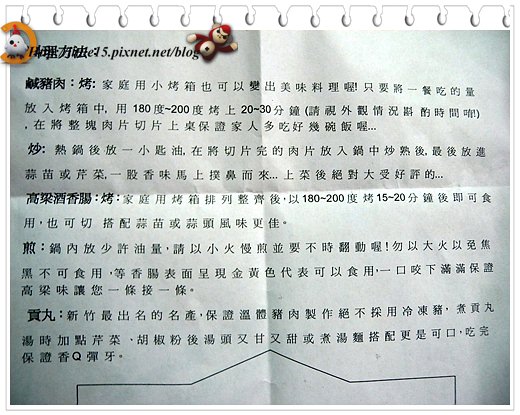 料理方法:
15.pixnet.net/blog
鹹豬肉:烤:家庭用小烤箱也可以變出美味料理喔!只要將一餐吃的量
放入烤箱中,用180度~200度烤上20~30分鐘(請視外觀情況斟酌時間唷!)
,在將整塊肉片切片上桌保證家人多吃好幾碗飯喔...
炒:熱鍋後放一小匙油,在將切片完的肉片放入鍋中炒熟後,最後放進
蒜苗或芹菜,一股香味馬上撲鼻而來...上菜後絕對大受好評的...
高梁酒香腸:烤:家庭用烤箱排列整齊後,以180~200度烤15~20分鐘後即可食
用,也可切 搭配蒜苗或蒜頭風味更佳。
煎:鍋內放少許油量,請以小火慢煎並要不時翻動喔!勿以大火以免焦
黑不可食用,等香腸表面呈現金黃色代表可以食用,一口咬下滿滿保證
高梁味讓您一條接一條。
貢丸:新竹最出名的名產,保證溫體豬肉製作絕不採用冷凍豬,煮貢丸
湯時加點芹菜、胡椒粉後湯頭又甘又甜或煮湯麵搭配更是可口,吃完
保證香Q彈牙。